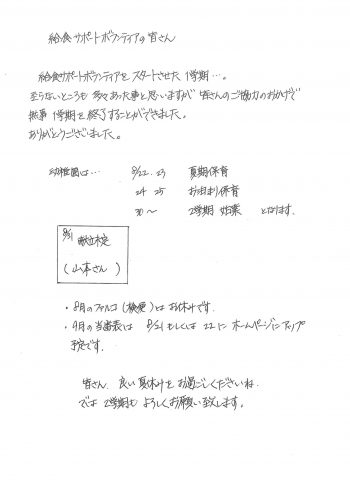 給食サポートボランティアの皆さん
給食サポートボランティアをスタートさせた1学期…。
至らないところも多々あった事と思いますが皆さんのご協力のおかげで
無事1学期を終了することができました。
ありがとうございました。
幼稚園は… 8/22.23 夏期保育
24 25 お泊まり保育
30〜 2学期 始業 となります。
8/31 献立検定
(山本さん)
・8月のファルコ(検便)はお休みです。
・9月の当番表は 8/21もしくは22にホームページにアップ
予定です。
皆さん 良い夏休みをお過ごしくださいね
では 2学期もよろしくお願い致します。